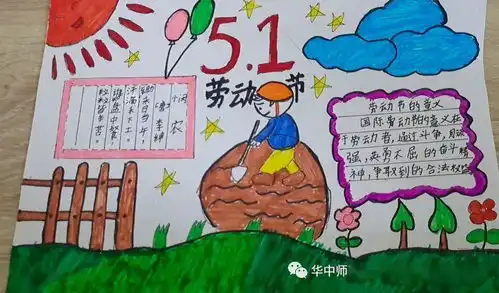 5.1
劳动节
悯农
唐 李绅
锄禾日当午，
汗滴禾下土。
谁知盘中餐
粒粒皆辛苦。
劳动节的意义
国际劳动节的意义在
于劳动者，通过斗争，
强，英勇不屈的奋斗精
神，争取到的合法权益
华中师